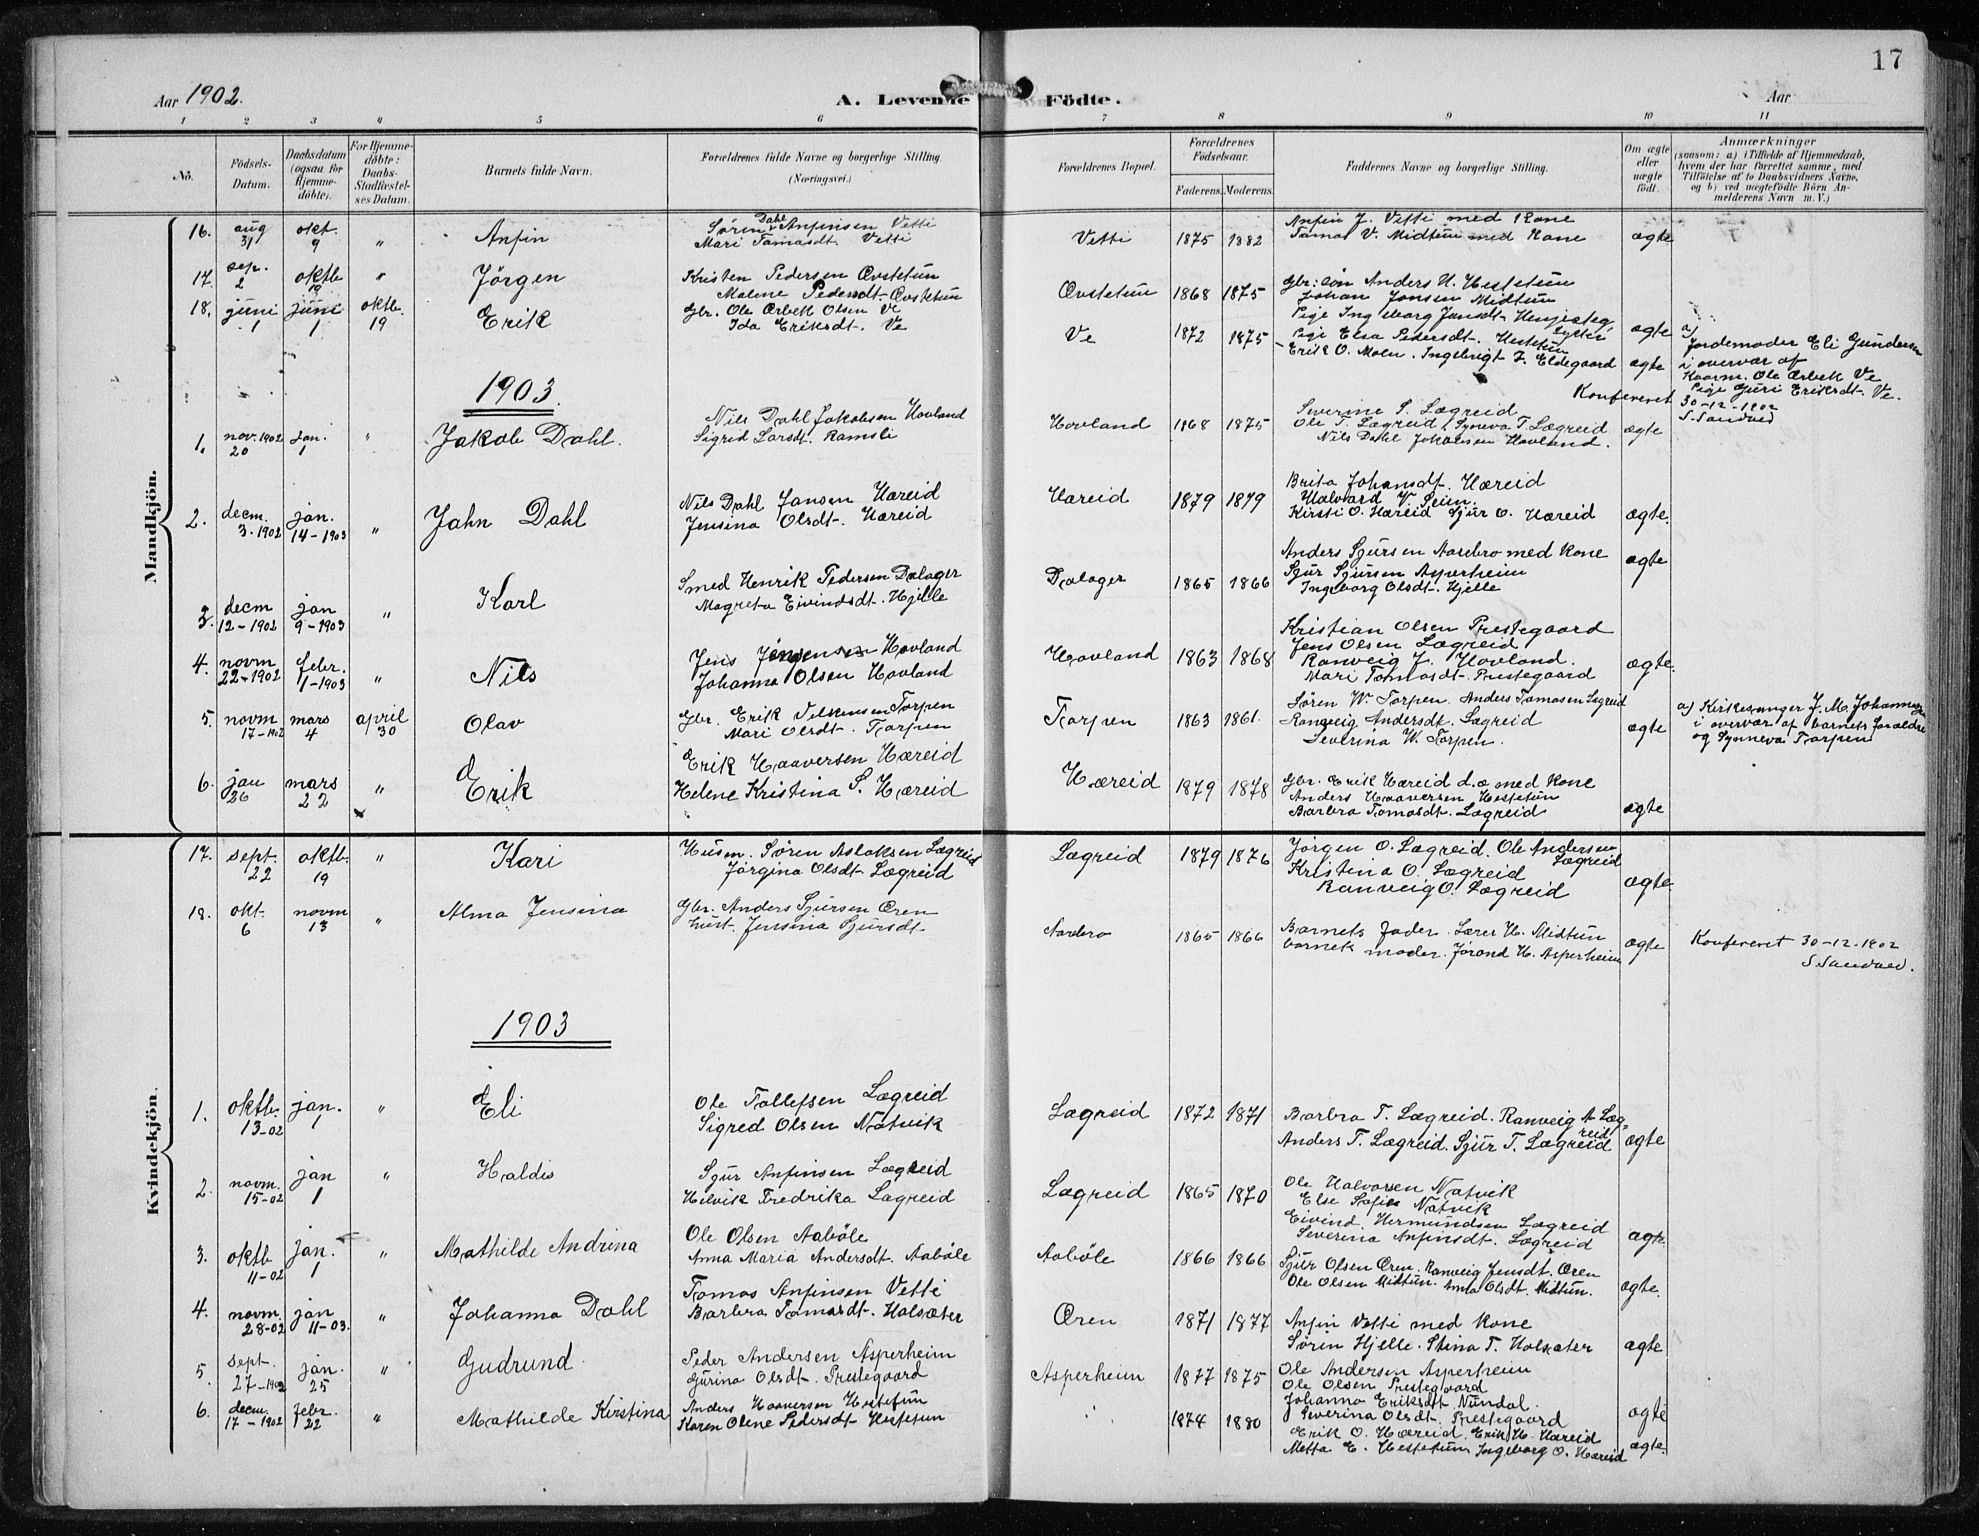 17
Aar 1902.
A. Levende Födte.
Aar
1 2 3 4 5 6 7 8 9 10 11
No.
Födsels-Datum.
Daabsdatum (ogsaa for Hjemme-döbte).
For Hjemme-döbte: Daabs-Stadfæstel-ses Datum.
Barnets fulde Navn.
Forældrenes fulde Navne og borgerlige Stilling. (Næringsvei.)
Forældrenes Bopæl.
Forældrenes Födselsaar.
Faderens. Moderens.
Faddernes Navne og borgerlige Stilling.
Om ægte eller uægte födt.
Anmærkninger (saasom: a) i Tilfælde af Hjemmedaab, hvem der har forrettet samme, med Tilföielse af to Daabsvidners Navne, og b) ved uægtefödte Börn An-melderens Navn m. V.)
Mandkjön.
16. aug 31 okt. 9 " Anfin
Sören Dahl Anfinsen Vetti
Mari Tomasdt. Vetti
Vetti 1875 1882
Anfin J. Vetti med Kone
Tomas V. Midtun med Kone
ægte
17. sep. 2 oktb 19 " Jörgen
Kristen Pedersen Øvstetun
Malene Pedersdt. Øvstetun
Øvstetun 1868 1875
Gbr: sön Anders H. Hestetun
Johan Jonsen Midtun
Pige Ingeborg Jansdt. Henjesteg,
Pige Elsa Pedersdt. Hestetun
ægte
18. juni 1 juni 1 oktb. 19 Erik
Gbr. Ole Ærbek Olsen Ve
Ida Eriksdt. Ve
Ve 1872 1875
Erik O. Moen. Ingebrigt J. Eldegaard
ægte
a) Jordemoder Eli Gundersen
i overvær af
Kaarm. Ole Ærbek Ve
Pige Guri Eriksdt. Ve.
Konfereret 30-12-1902
S. Sandved
1903.
1. nov. 1902 20 jan. 1 " Jakob Dahl.
Nils Dahl Jakobsen Hovland
Sigrid Larsdt. Ramsli
Hovland 1868 1875
Severine S. Lægreid
Ole T. Lægreid, Synneva T. Lægreid
Nils Dahl Jakobsen Hovland.
ægte
2. decm. 3. 1902 jan. 14-1903 " Jahn Dahl
Nils Dahl Jansen Hæreid
Jensina Olsdt. Hæreid
Hæreid 1879 1879
Brita Johansdt. Hæreid
Halvard V. Seim.
Kirsti O. Hæreid Sjur O. Hæreid
ægte.
3. decm 12-1902 jan 9-1903 " Karl
Smed Henrik Pedersen Dalager
Magreta Eivindsdt. Hjelle
Dalager 1865 1866
Anders Sjursen Aarebro med Kone
Sjur Sjursen Asperheim
Ingeborg Olsdt. Hjelle
ægte
4. novm 22-1902 febr. 1-1903 " Nils
Jens Jensen Hovland
Johanna Olsen Hovland
Hovland 1863 1868
Kristian Olsen Prestegaard
Jens Olsen Lægreid
Ranveig J. Hovland.
Mari Tomasdt. Prestegaard
ægte.
5. novm 17-1902 mars 4 april 30 Olav
Gbr. Erik Torpen
Mari Olsdt. Torpen
Torpen 1863 1861.
Sören W. Torpen Anders Tomasen Lægreid
Ranveig Andersdt. Lægreid
Severina W. Torpen.
ægte
a) Kirkesanger J. M. Johannesen
i overvær af barnets foraldre
og Synneva Torpen
6. jan 26 mars 22 " Erik
Erik Haaversen Hæreid
Helene Kristina S. Hæreid
Hæreid 1879 1878
Gbr. Erik Hæreid d.æ med Kone
Anders Haaversen Hestetun
Barbra Tomasdt. Lægreid
ægte
Kvindekjön.
17. sept. 22 oktb. 19 " Kari
Husm. Sören Aslaksen Lægreid
Jörgina Olsdt. Lægreid
Lægreid 1879 1876
Jörgen O. Lægreid. Ole Andersen Lægreid
Kristina O. Lægreid
Ranveig O. Lægreid
ægte.
18. okt. 6 novm 13 " Alma Jensina
Gbr. Anders Sjursen Øren
hust. Jensina Sjursdt.
Aarebro 1865 1866
Barnets fader. Lærer H. Midtun
barnets moder. Jörond H. Asperheim
ægte
Konfereret 30-12-1902
S Sandved.
1903
1. oktb. 13-02 jan. 1 " Eli
Ole Tollefsen Lægreid
Sigred Olsen Natvik
Lægreid 1872 1871
Barbra T. Lægreid. Ranveig A Læg-reid
Anders T. Lægreid. Sjur T. Lægreid
ægte
2. novm. 15-02 jan 1 " Haldis
Sjur Anfinsen Lægreid
Helvik Fredrika Lægreid
Lægreid 1865 1870
Ole Halvorsen Natvik
Else Sofie Natvik
Eivind Hermundsen Lægreid
Severina Anfinsdt. Lægreid
ægte
3. oktb 11-02 jan. 1 " Mathilde Andrina
Ole Olsen Aaböle
Anna Maria Andersdt. Aaböle
Aaböle 1866 1866
Sjur Olsen Øren. Ranveig Jensdt. Øren
Ole Olsen Midtun. Anna Olsdt. Midtun.
ægte.
4. novm. 28-02 jan 11-03. " Johanna Dahl
Tomas Anfinsen Vetti
Barbra Tomasdt. Holsæter
Øren 1871 1877
Anfin Vetti med Kone
Sörin Hjelle. Stina T. Holsæter
ægte
5 sept. 27-1902 jan. 25 " Gudrund
Peder Andersen Asperheim
Gjurina Olsdt. Prestegaard
Asperheim 1877 1875
Ole Andersen Asperheim
Ole Olsen Prestegaard
Johanna Eriksdt Nundal.
Severina Olsdt. Prestegaard
ægte
6. decm. 17-1902 febr. 22 " Mathilde Kirstina
Anders Haaversen Hestetun
Karen Oline Pedersdt Hestetun
1874 1880
Erik O. Hæreid. Erik H. Hæreid
Metta E. Hestetun, Ingeborg O. Hæreid
ægte.